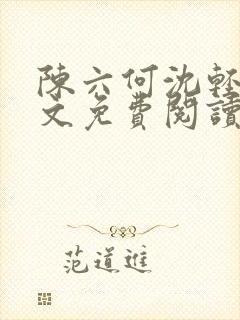 陳六何沈輕
文免費閱讀
范道進